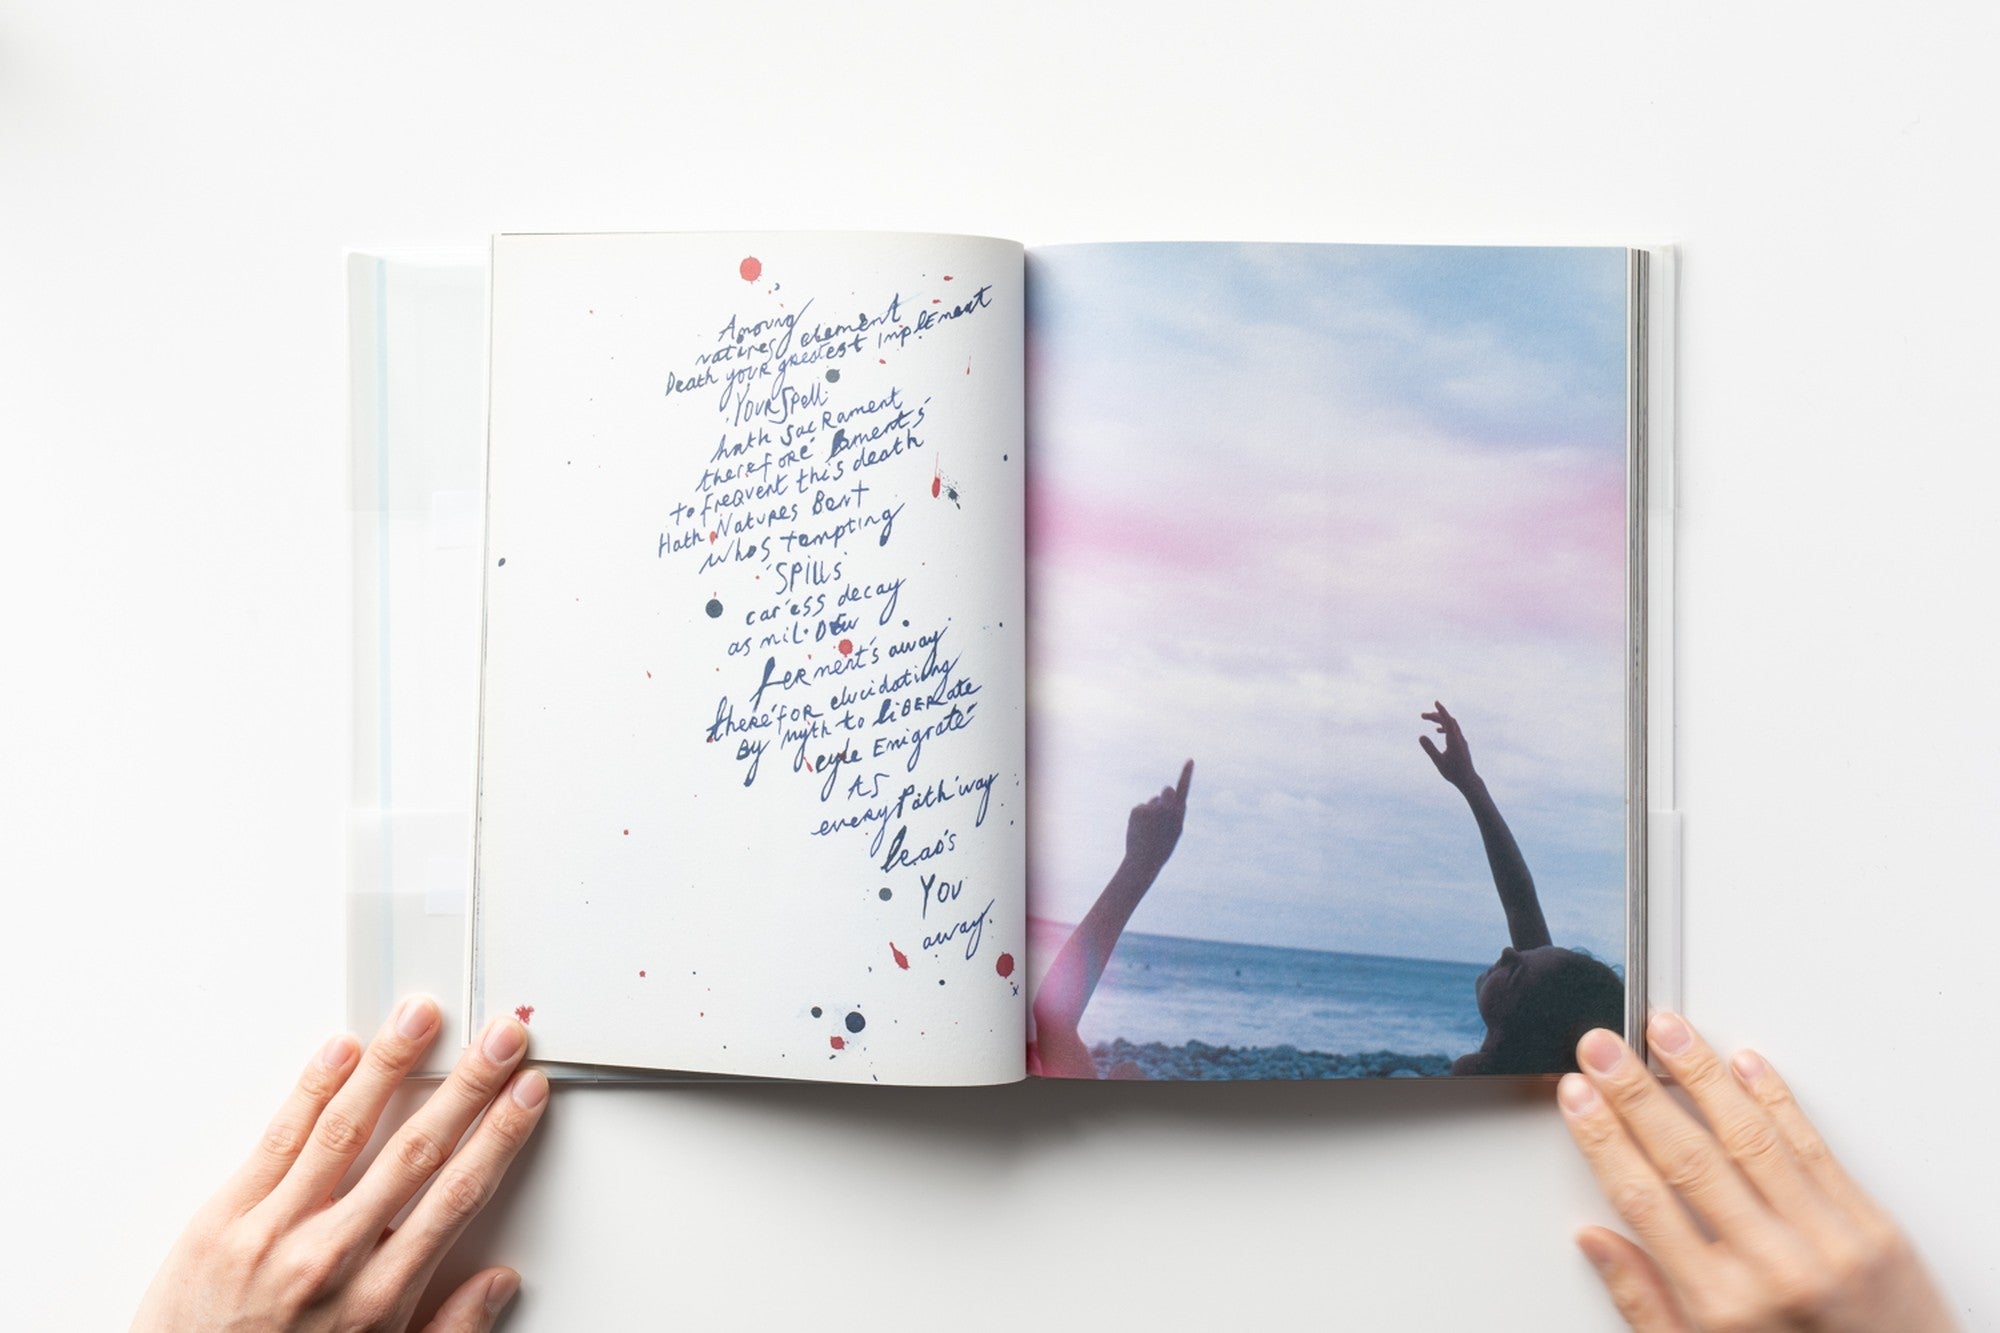 Amoung
natures element
Death your greatest implement
Your Spell
hath SacRament
therefore laments
to freQuent this death
Hath Natures Bent
Whos tempting
SPILLS
car'ess decay
as mil.DEw
ferment's away
there'foR elucidating
By myth to liBERate
Emigraté
AS
eveRy Path'way
lead's
You
away.
x